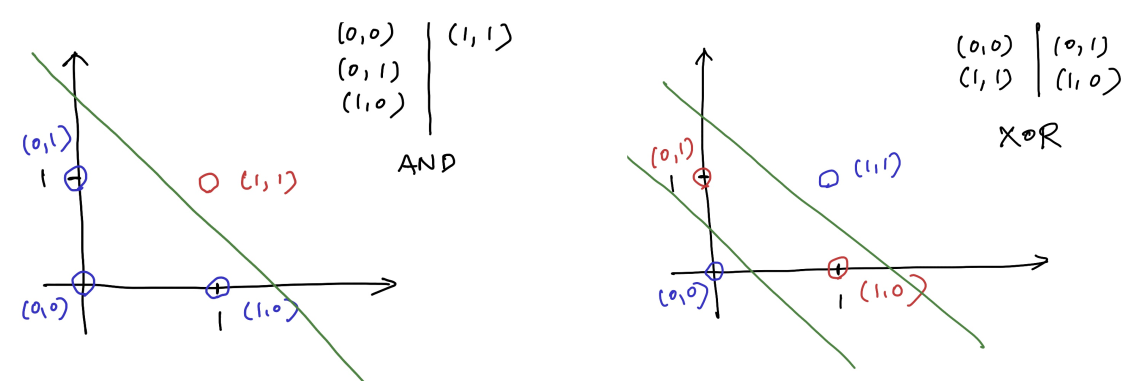 (0,0) | (1,1)
(0,1)
(1,0)
AND
(0,1)
1
(1,1)
(0,0)
1
(1,0)
(0,0) | (0,1)
(1,1) | (1,0)
XOR
(0,1)
1
(1,1)
(0,0)
1
(1,0)